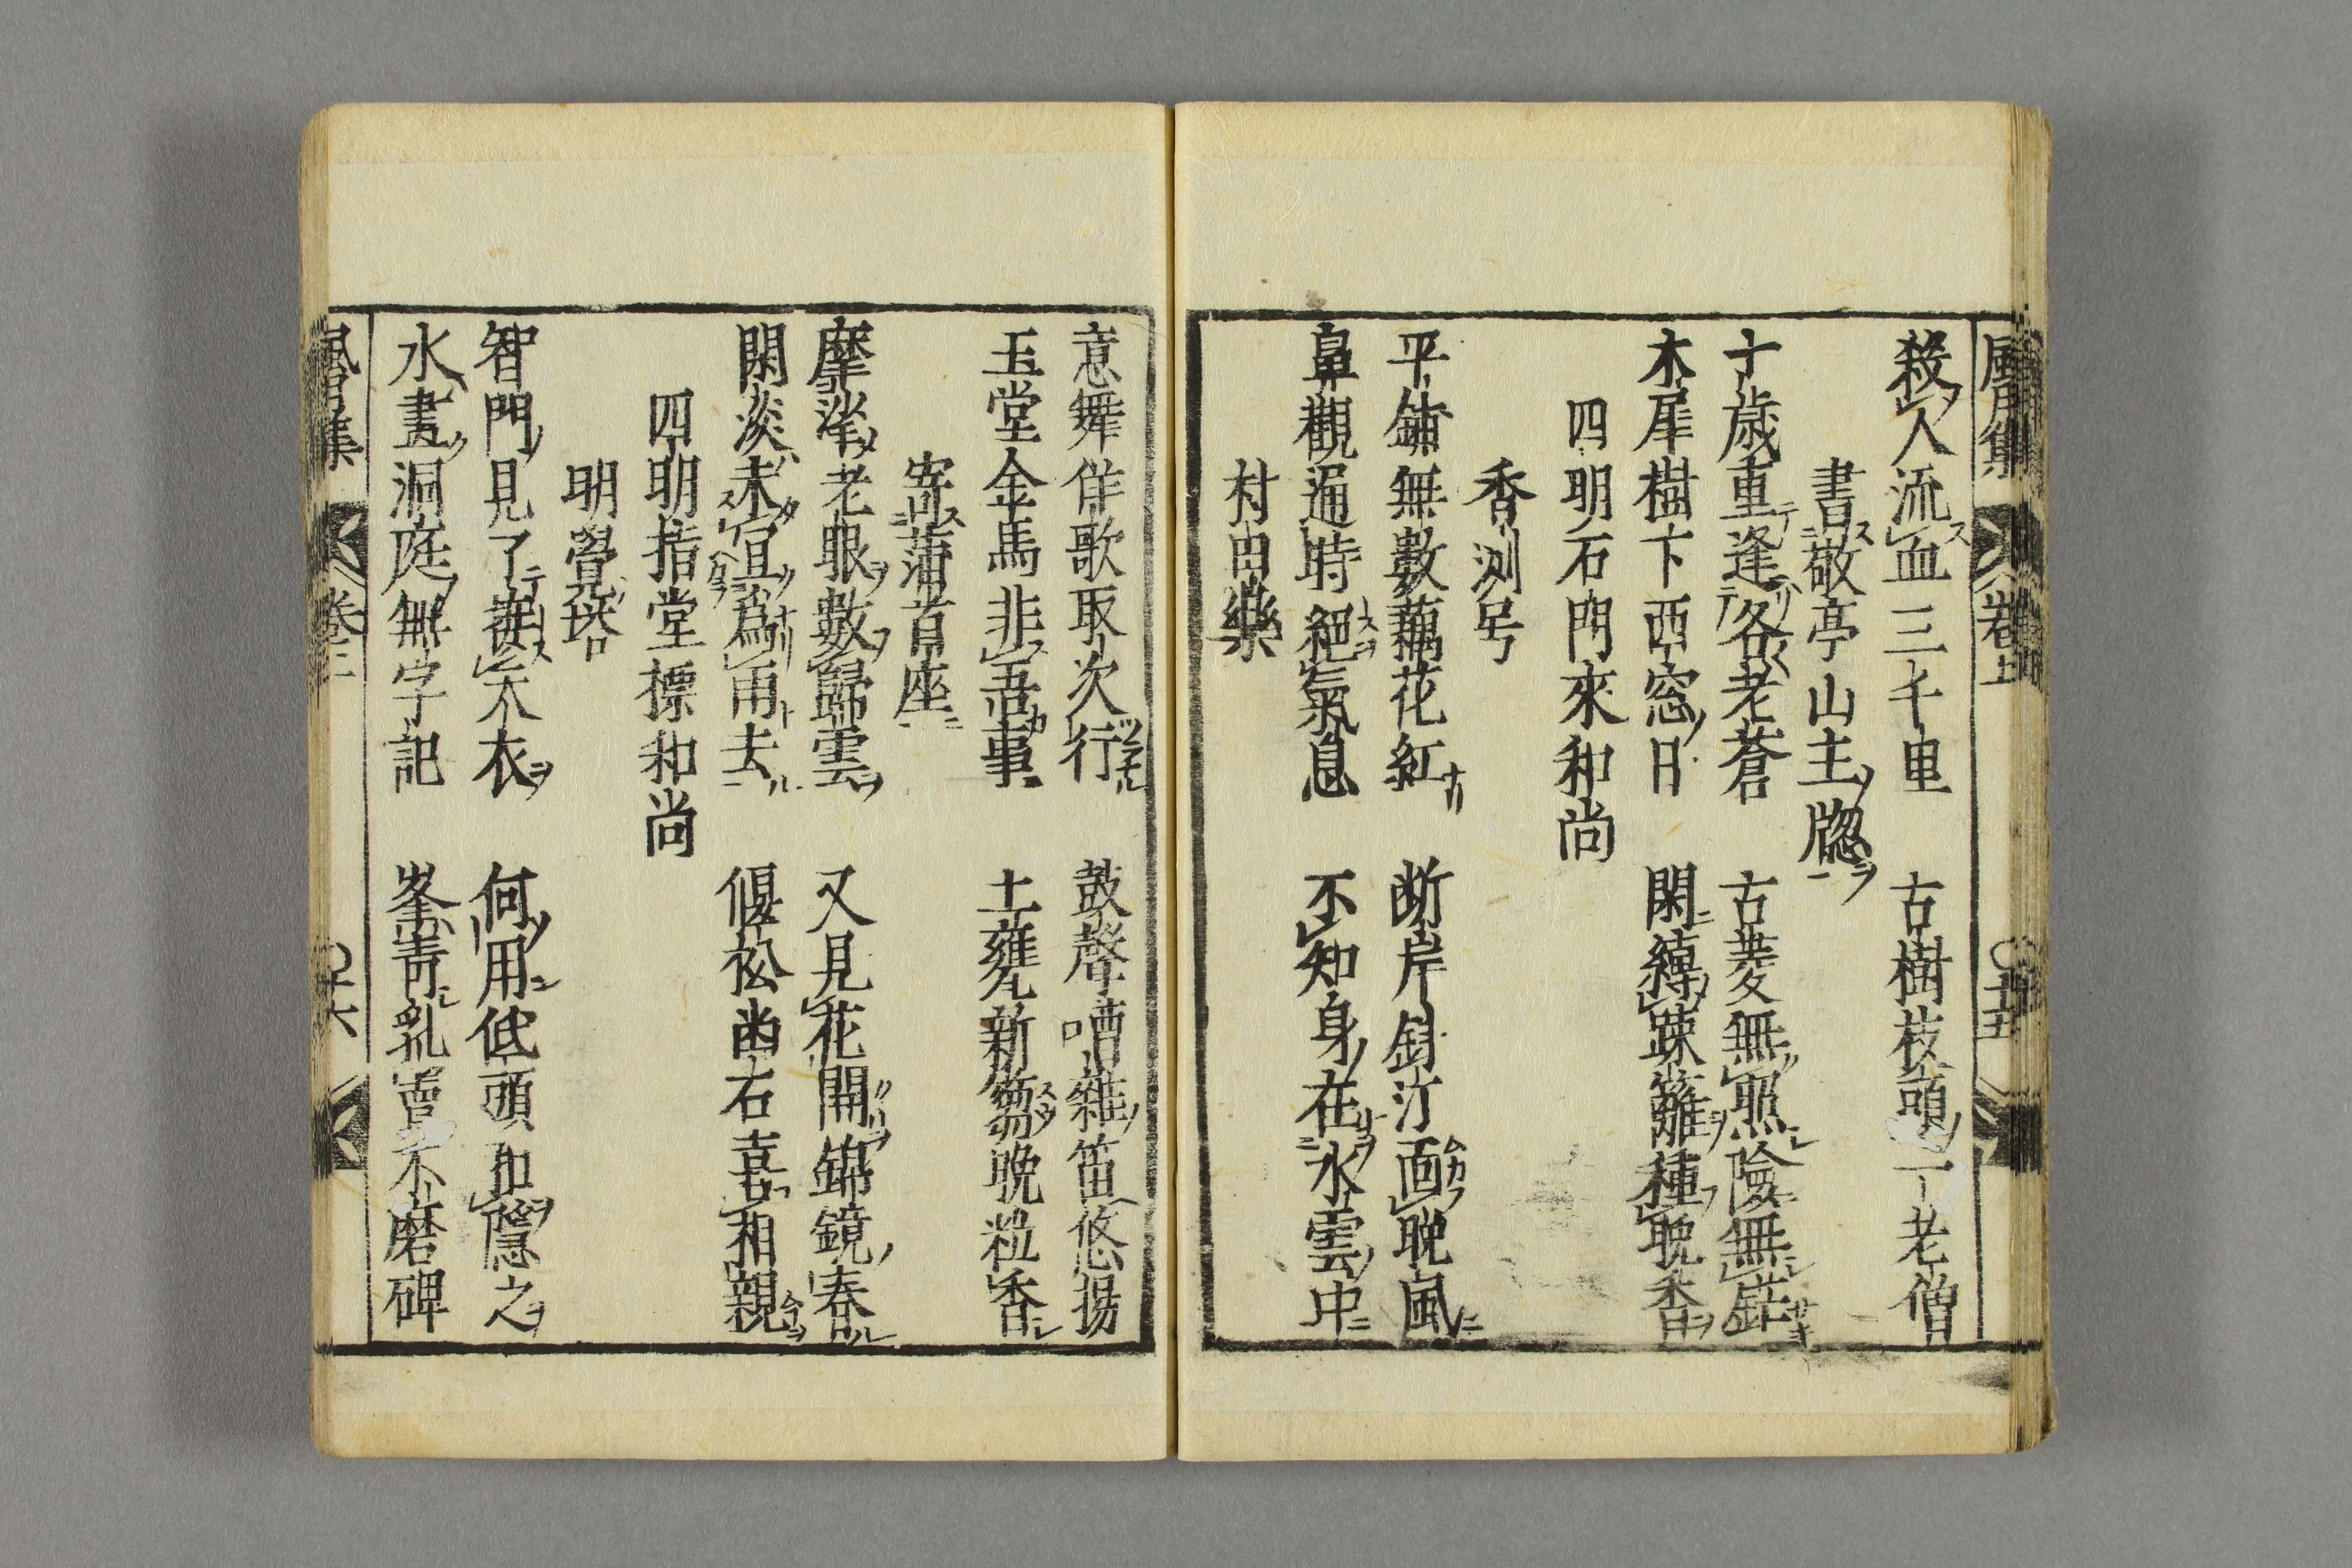 風月集 卷上 五十五
殺人流血三千里 古樹枝頭一丁老僧
書敬亭山主牕
十歲重逢各老蒼 古菱無照險無崖
木犀樹下西窓日 閑縛踈籬種晚香
四明石門來和尚
香测号
平鋪無數藕花紅 断岸斜汀面晚風
鼻觀通時絕氣息 不知身在水雲中
村田樂
意舞佯歌取次行 鼓聲嘈雜笛悠揚
玉堂金馬非吾事 土甕新蒭晚粒香
寄蒲首座
摩挲老眼數歸雲 又見花開錦鏡春
閑淡未宜爲甬去 偃松凾右喜相親
四明指堂摽和尚
明覺塔
智門見了㝡天衣 何用低頭扣隱之
水畫洞庭無字記 峯青乳竇不磨碑